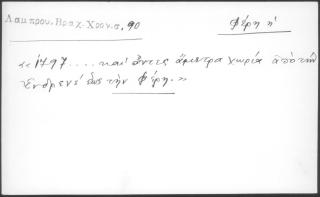 Λαμπρου, Βραχ. Χρον. σ. 90
Φέρη ἡ
«1797.... καὶ ὄντες ἄρχιστρα χωρία ἀπὸ τὴν
Ἐνδρενέ ἕως τὴν Φέρη.»